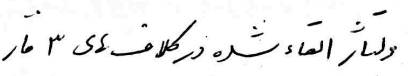 ولتاژ القاء شده در کلاف های ۳ فاز